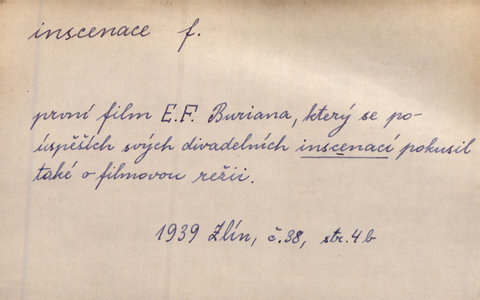 inscenace f.
první film E.F. Buriana, který se po-
úspěších svých divadelních inscenací pokusil
také o filmovou režii.
1939 Zlín, č.38, str.4b